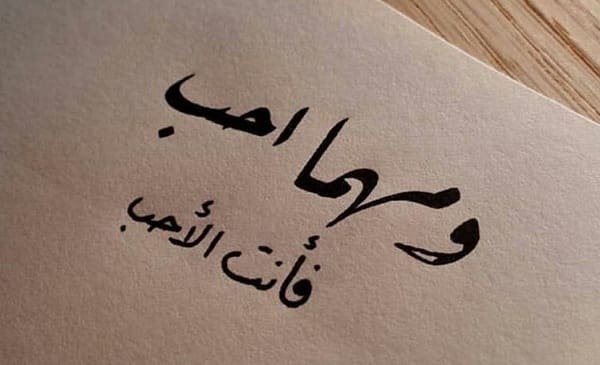 ومهما احب
فأنت الأحب